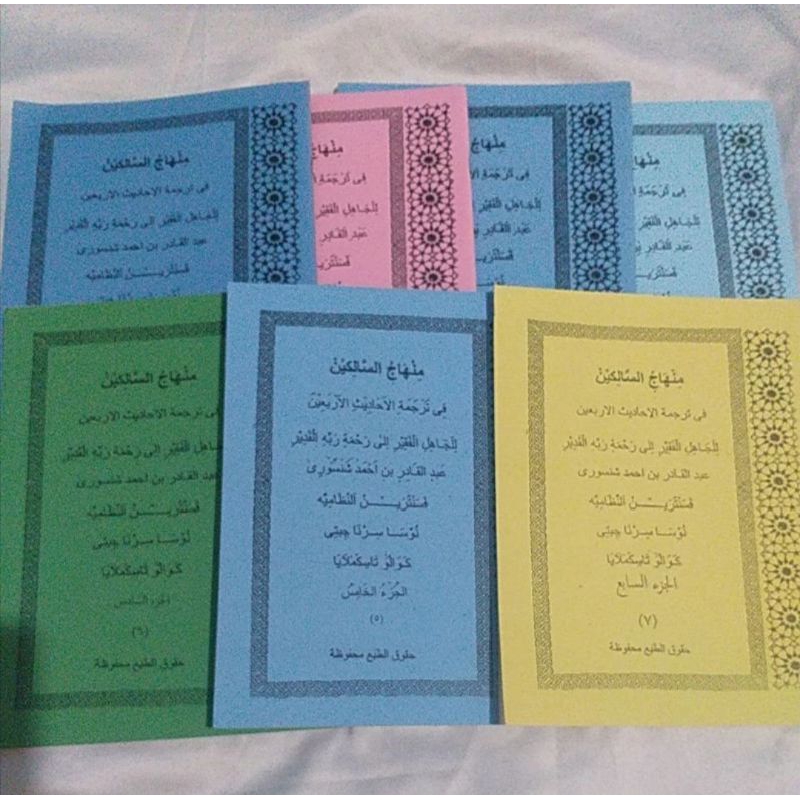 مِنْهَاجُ السَّالِكِيْنَ
فى ترجمة الاحاديث الاربعين
لِلْجَاهِلِ الْفَقِيْرِ اِلَى رَحْمَةِ رَبِّهِ الْقَدِيْرِ
عبد القادر بن احمد شنسورى
فَسَنْتْرَيـــنْ اَلنِّظَامِيَّه
مِنْهَاجُ
فِى تَرْجَمَةِ
لِلْجَاهِلِ الْفَقِيْرِ
عَبْدِ الْقَادِرِ
مِنْهَاجُ
فِى تَرْجَمَةِ
لِلْجَاهِلِ الْفَقِيْرِ
عَبْدِ الْقَادِرِ
مِنْهَاجُ
فِى تَرْجَمَةِ
لِلْجَاهِلِ الْفَقِيْرِ
عَبْدِ الْقَادِرِ
مِنْهَاجُ السَّالِكِيْنَ
فى ترجمة الاحاديث الاربعين
الْفَقِيْرِ اِلَى رَحْمَةِ رَبِّهِ الْقَدِيْرِ
عبد القادر بن احمد شنسورى
فَسَنْتْرَيـــنْ اَلنِّظَامِيَّه
لُوْسَـا سِرْنَا جِيتِى
كَوَالُوْ تَاسِكْمَلَايَا
الجزء السادس
(٦)
حقوق الطبع محفوظة
مِنْهَاجُ السَّالِكِيْنَ
فِى تَرْجَمَةِ الْاَحَادِيْثِ الْاَرْبَعِيْنَ
لِلْجَاهِلِ الْفَقِيْرِ اِلَى رَحْمَةِ رَبِّهِ الْقَدِيْرِ
عَبْدِ الْقَادِرِ بن اَحْمَدْ شَنْسُوْرِى
فَسَنْتْرَيـــنْ اَلنِّظَامِيَّه
لُوْسَـا سِرْنَا جِيتِى
كَوَالُوْ تَاسِكْمَلَايَا
اَلْجُزْءُ الْخَامِسُ
(٥)
حقوق الطبع محفوظة
مِنْهَاجُ السَّالِكِيْنَ
فى ترجمة الاحاديث الاربعين
لِلْجَاهِلِ الْفَقِيْرِ اِلَى رَحْمَةِ رَبِّهِ الْقَدِيْرِ
عبد القادر بن احمد شنسورى
فَسَنْتْرَيـــنْ اَلنِّظَامِيَّه
لُوْسَـا سِرْنَا جِيتِى
كَوَالُوْ تَاسِكْمَلَايَا
الجزء السابع
(٧)
حقوق الطبع محفوظة